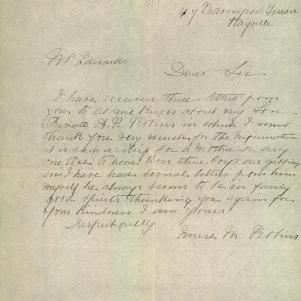 49 Davenport Terrace
Mr Edwards
Dear Sir
I have received three letters from
you to let me know about my Son
Private A. P. in which I must
thank you very much for the information
it is such a help for a Mother or any
one else to hear how there boys are getting
on I have had several letters from him
myself he always seems to be in fairly
good spirits thanking you again for
your kindness I am yours
respectfully
M